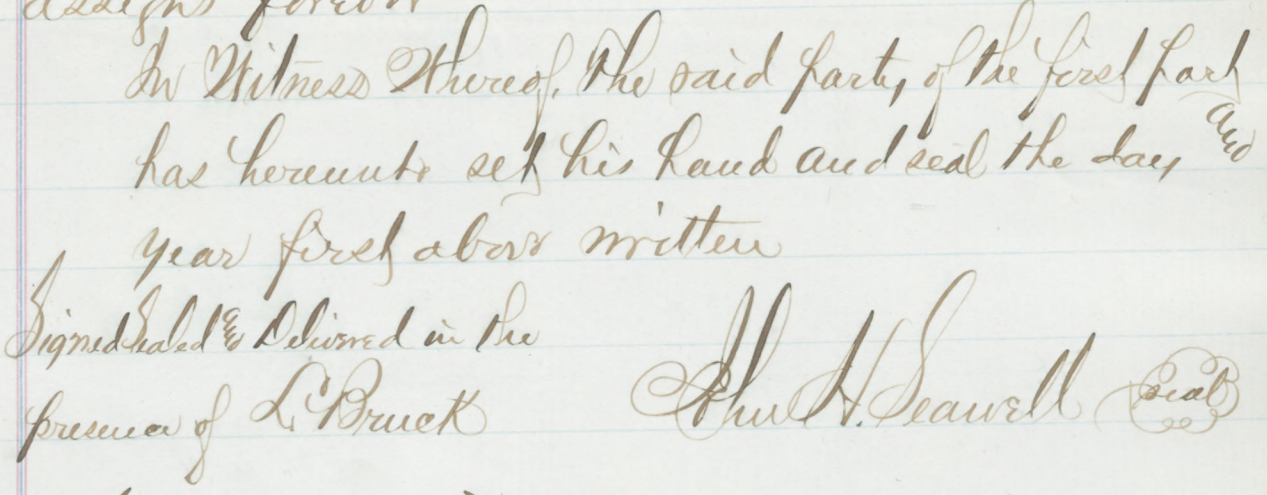 assigns forever
In Witness Whereof, the said party, of the first part
has hereunto set his hand and seal the day and
year first above written
Signed Sealed & Delivered in the
presence of L. Bruck John H. Seawell (seal)